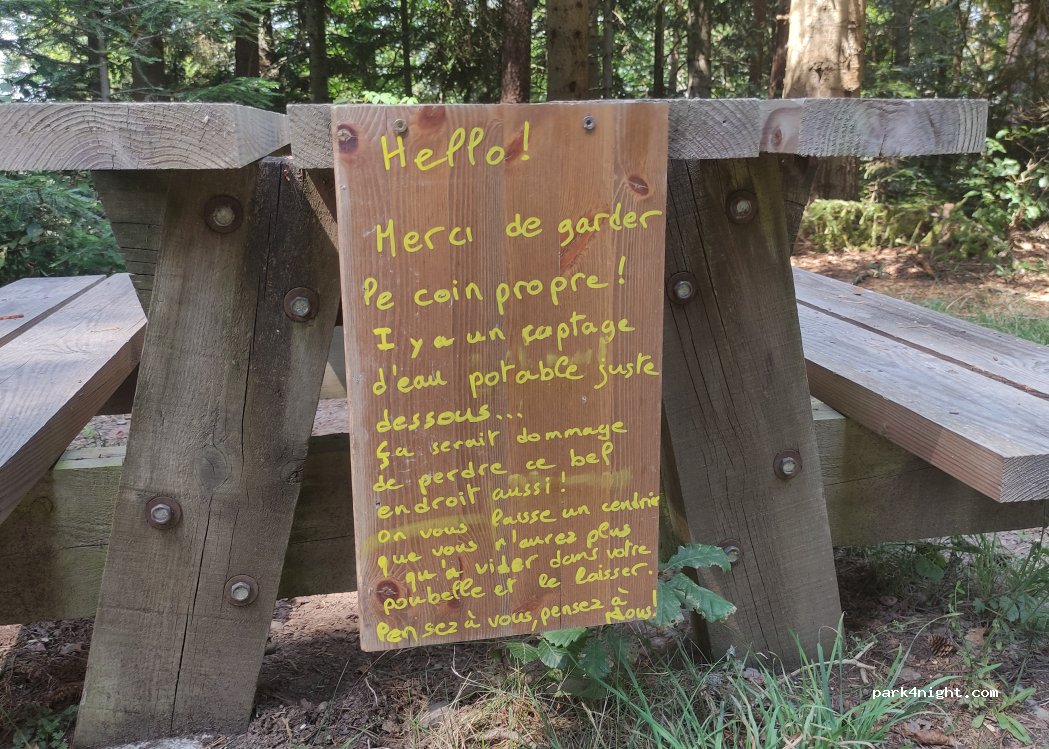 Hello!
Merci de garder
le coin propre!
I y a un captage
d'eau potable juste
dessous...
ça serait dommage
de perdre ce bel
endroit aussi!
On vous laisse un cendrier
que vous n'aurez plus
qu'à vider dans votre
poubelle et le laisser.
Pensez à vous, pensez à
nous!
park4night.com